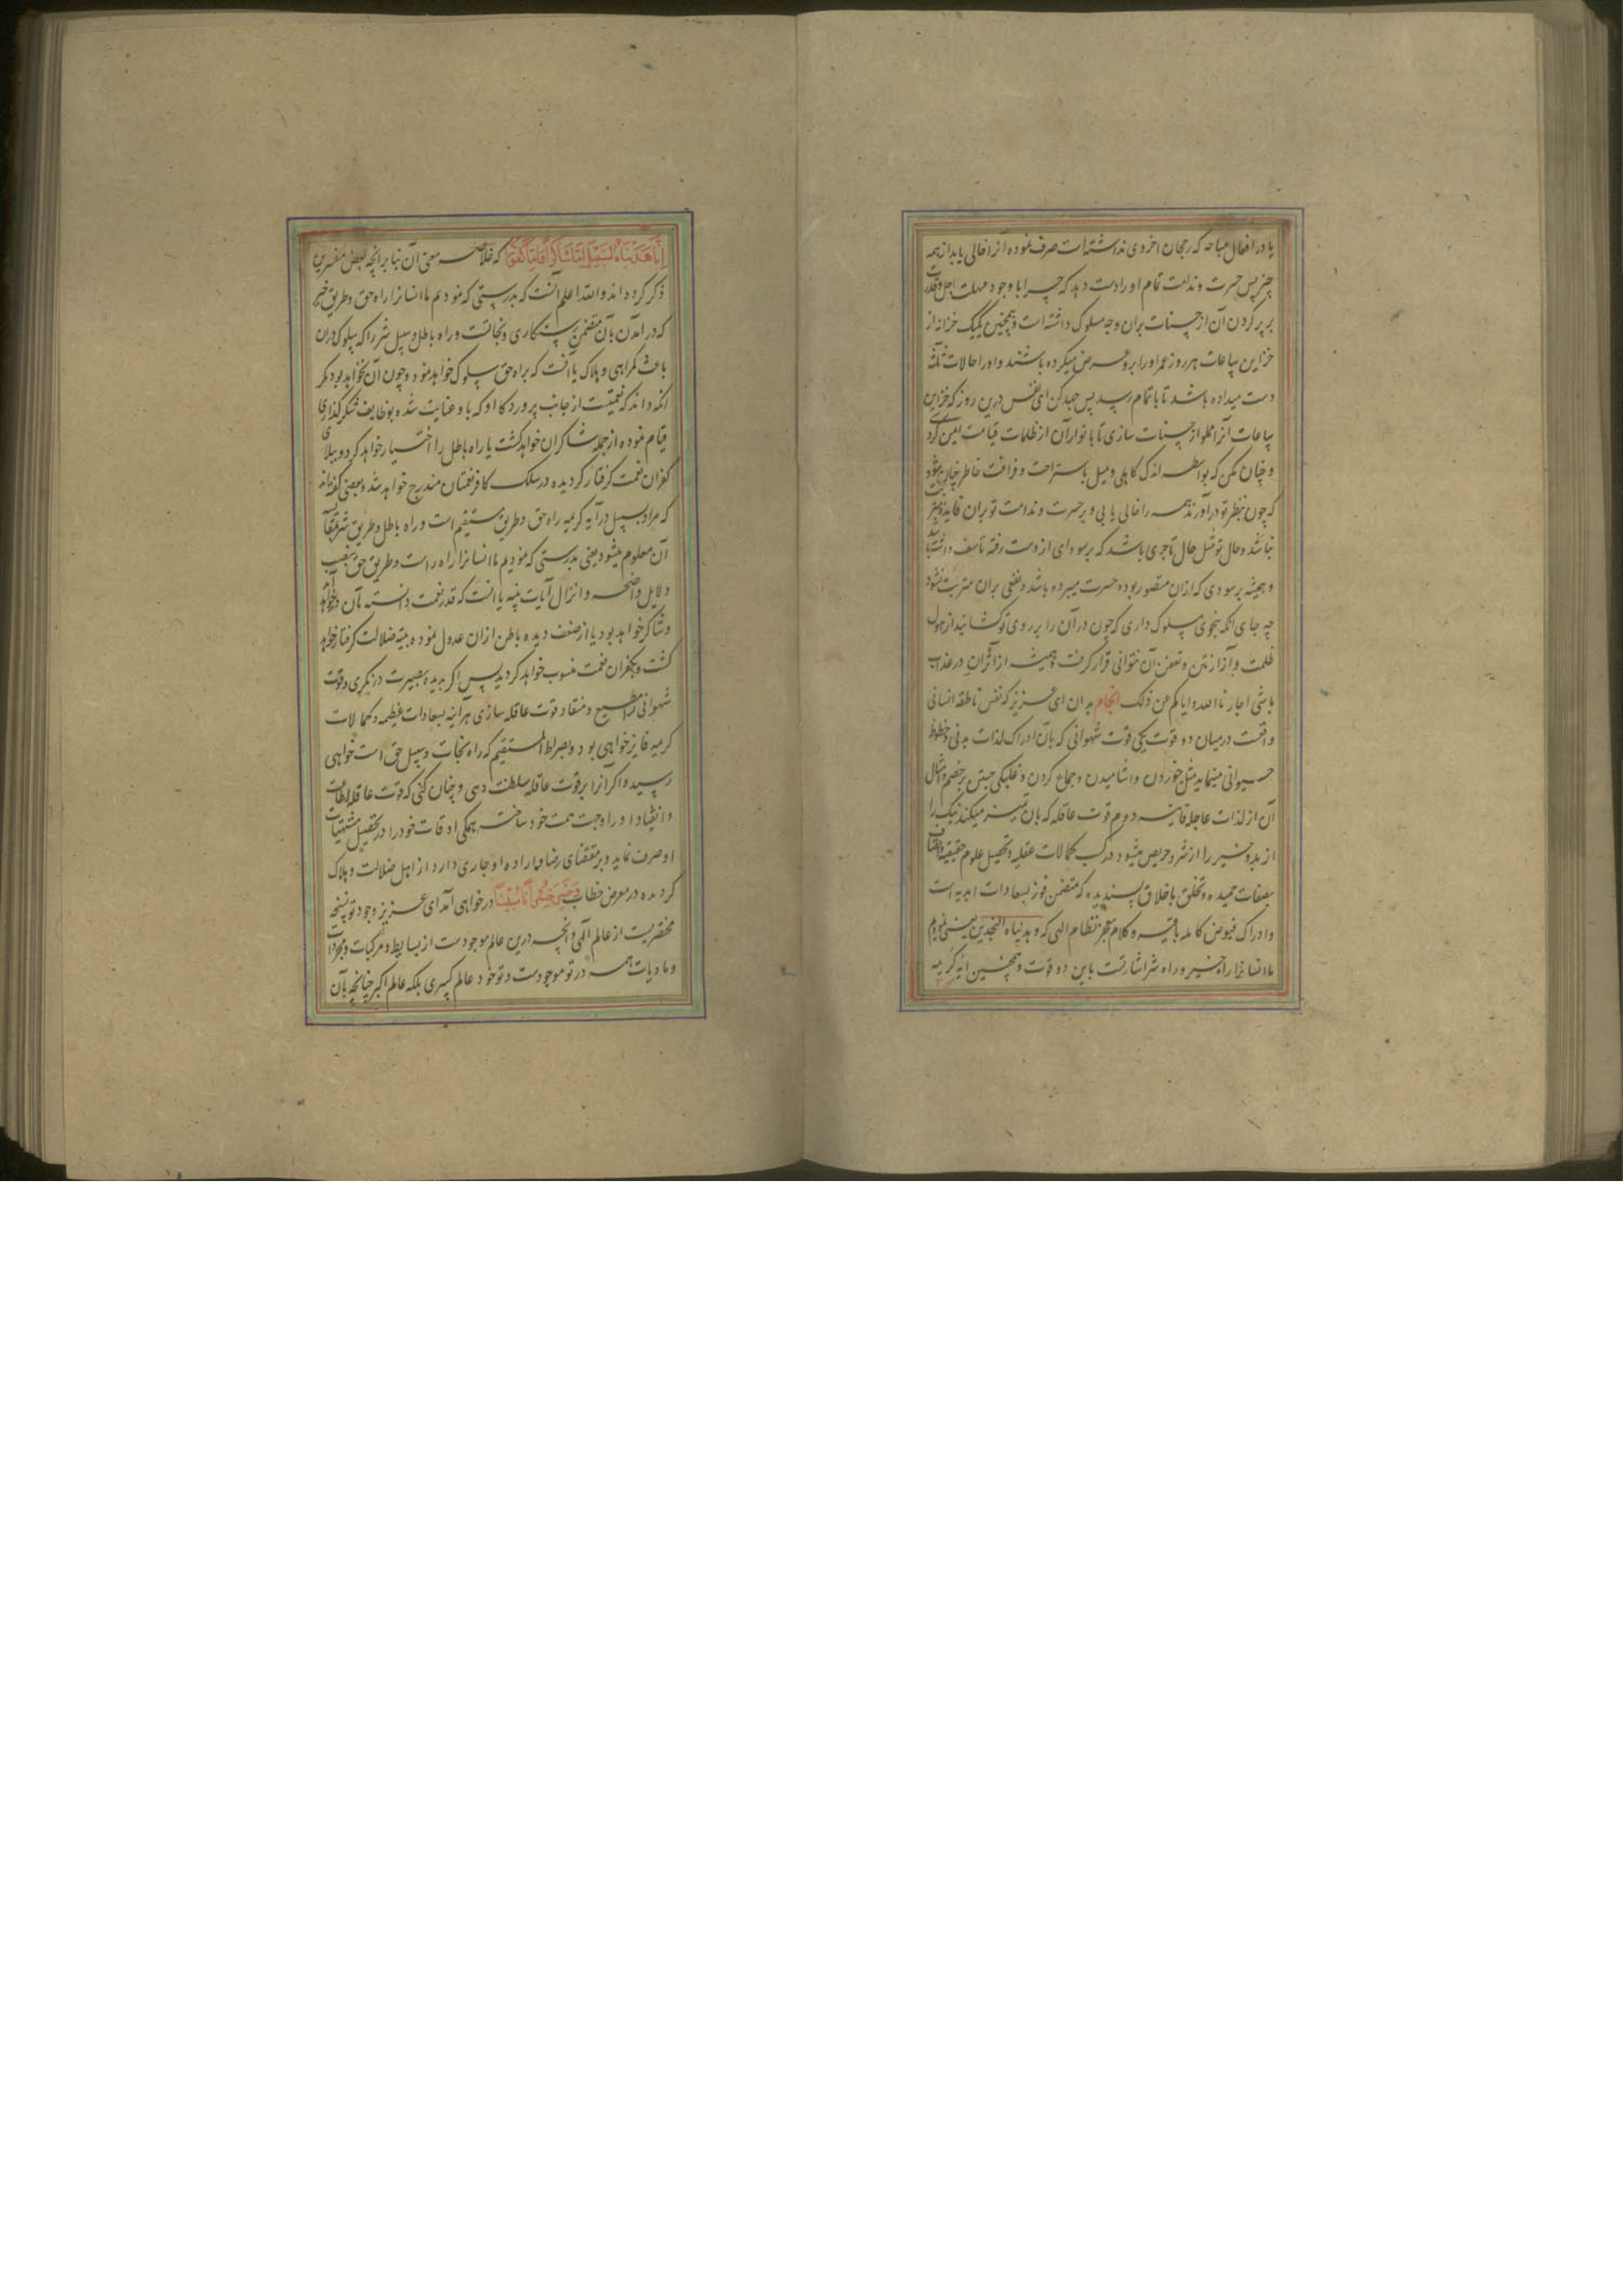 یا در افعال مباحه که رجحان اخروی نداشته است صرف نموده آنرا خالی یابد از همه
چیز پس حسرت و ندامت تمام او را دست دهد که چرا با وجود مهلت اجل و قدرت
بر پر کردن آن از حسنات بران وجه سلوک داشته است و همچنین یک یک خزانه از
خزاین ساعات هر روز عمر او را برو عرض میکرده باشند و او را حالات ثلثه
دست میداده باشد تا باتمام رسد پس جهد کن ای نفس درین روز که خزاین
ساعات آنرا مملو از حسنات سازی تا بانوار آن از ظلمات قیامت ایمن گردی
و چنان مکن که بواسطه اندک کاهلی و میل باستراحت و فراغت خاطر چنان شود
که چون بنظر تو درآورند همه را خالی یابی و بر حسرت و ندامت تو بران فایده مترتب
نباشد و حال تو مثل حال تاجری باشد که بر سودای از دست رفته تاسف داشته باشد
و همیشه بر سودی که ازان مقصور بوده حسرت میبرده باشد و نفعی بران مترتب نشود
چه جای انکه بنحوی سلوک داری که چون در آن را بر روی تو کشانید از هول
ظلمت و آزار نتن و تعفن آن نتوانی قرار گرفت و همیشه از اثر آن در عذاب
باشی اجارنا الله و ایاکم عن ذلک انجام بدان ای عزیز که نفس ناطقه انسانی
واقعست در میان دو قوت یکی قوت شهوانی که بآن ادراک لذات بدنی و حظوظ
حیوانی مینماید مثل خوردن و اشامیدن و جماع کردن و غلبگی جستن بر خصم و امثال
آن از لذات عاجله فانیه دوم قوت عاقله که بان تمیز میکند نیک را
از بد و خیر را از شر و حریص میشود در کسب کمالات عقلیه و تحصیل علوم حقیقیه و اتصاف
بصفات حمیده و تخلق باخلاق پسندیده که متضمن فوز بسعادات ابدیه است
و ادراک فیوض کامله باقیه و کلام معجز نظام الهی که و هدیناه النجدین یعنی نمودیم
ما انسانرا راه خیر و راه شر اشارتست باین دو قوت و همچنین آیه کریمه
إِنَّا هَدَيْنَاهُ السَّبِيلَ إِمَّا شَاكِرًا وَإِمَّا كَفُورًا که خلاصه معنی آن بنا بر انچه بعض مفسرین
ذکر کرده اند والله اعلم آنست که بدرستی که نمودیم ما انسانرا راه حق و طریق خیر
که درآمدن بآن متضمن رستکاری و نجاتست و راه باطل و سبیل شر را که سلوک دران
باعث گمراهی و هلاک یا آنست که براه حق سلوک خواهد نمود و چون آن نخواهد بود مگر
انکه داند که نعمتیست از جانب پروردگار او که باو عنایت شده بوظایف شکر گذاری
قیام نموده از جمله شاکران خواهد گشت یا راه باطل را اختیار خواهد کرد و ببلای
کفران نعمت گرفتار گردیده در سلک کافر نعمتان مندرج خواهد شد و بعضی گفته اند
که مراد بسبیل در آیه کریمه راه حق و طریق مستقیم است و راه باطل و طریق شر بمقابله
آن معلوم میشود یعنی بدرستی که نمودیم ما انسانرا راه راست و طریق حق بنصب
دلایل واضحه و انزال آیات بینه یا انست که قدر نعمت دانسته بآن درخواهد آمد
و شاکر خواهد بود یا از ضعف دیده باطن ازان عدول نموده به تیه ضلالت گرفتار خواهد
گشت و بکفران نعمت منسوب خواهد گردید پس اگر بدیده بصیرت در نگری و قوت
شهوانی را مطیع و منقاد قوت عاقله سازی هر اینه بسعادات عظیمه و کمالات
کریمه فایز خواهی بود و بصراط المستقیم که راه نجات و سبیل حق است خواهی
رسید و اگر آنرا بر قوت عاقله سلطنت دهی و چنان کنی که قوت عاقله اطاعت
و انقیاد او را وجهت همت خود ساخته همگی اوقات خود را در تحصیل مشتهیات
او صرف نماید و بر مقتضای رضا و اراده او جاری دارد از اهل ضلالت و هلاک
گردیده در معرض خطاب در خواهی آمد ای عزیز وجود تو نسخه
مختصریست از عالم الهی و انچه درین عالم موجودست از بسایط و مرکبات و مجردات
و مادیات همه در تو موجودست و تو خود عالم کبیری بلکه عالم اکبر چنانچه بآن